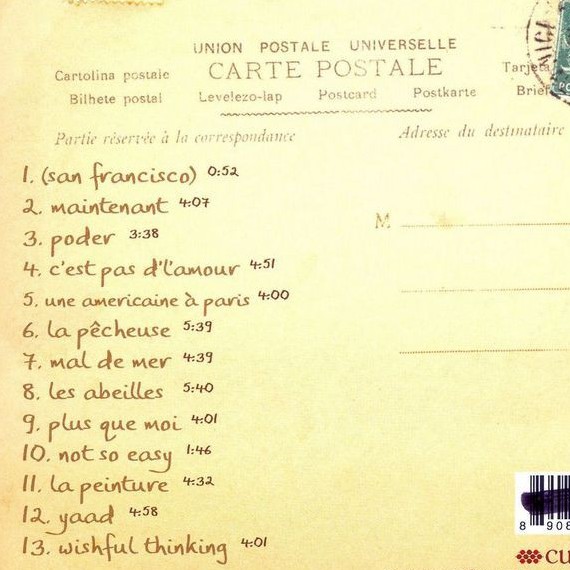 UNION POSTALE UNIVERSELLE
CARTE POSTALE
Cartolina postale
Tarjeta
Bilhete postal Levelezo-lap Postcard Postkarte Brief
Partie réservée à la correspondance
Adresse du destinataire
M
1. (san francisco) 0:52
2. maintenant 4:07
3. poder 3:38
4. c'est pas d'l'amour 4:51
5. une americaine à paris 4:00
6. la pêcheuse 5:39
7. mal de mer 4:39
8. les abeilles 5:40
9. plus que moi 4:01
10. not so easy 1:46
11. la peinture 4:32
12. yaad 4:58
13. wishful thinking 4:01
8 908
cu